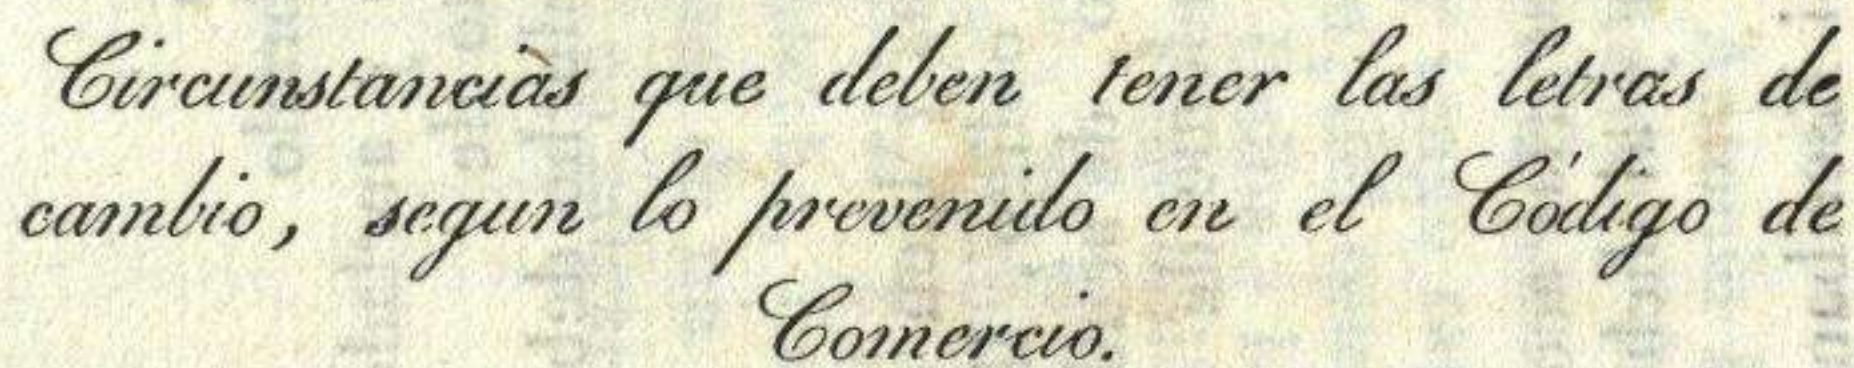 Circunstancias que deben tener las letras de
cambio, segun lo prevenido en el Código de
Comercio.